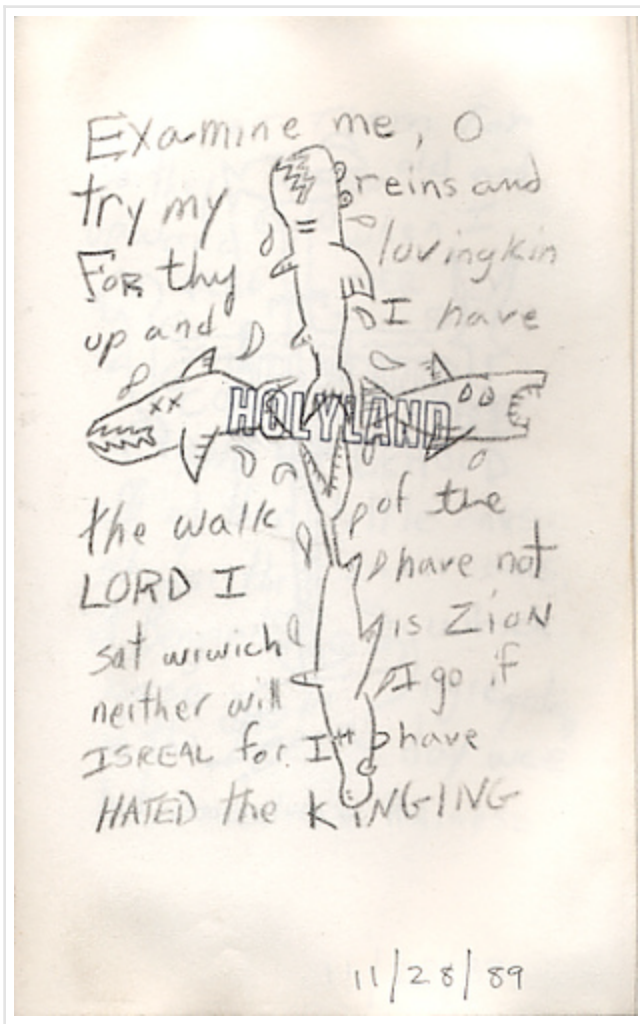 Examine me, O
try my reins and
For thy lovingkin
up and I have
HOLYLAND
the walk of the
LORD I have not
sat wiwich is ZiON
neither will I go if
ISREAL for I have
HATED the KiNGING
11/28/89